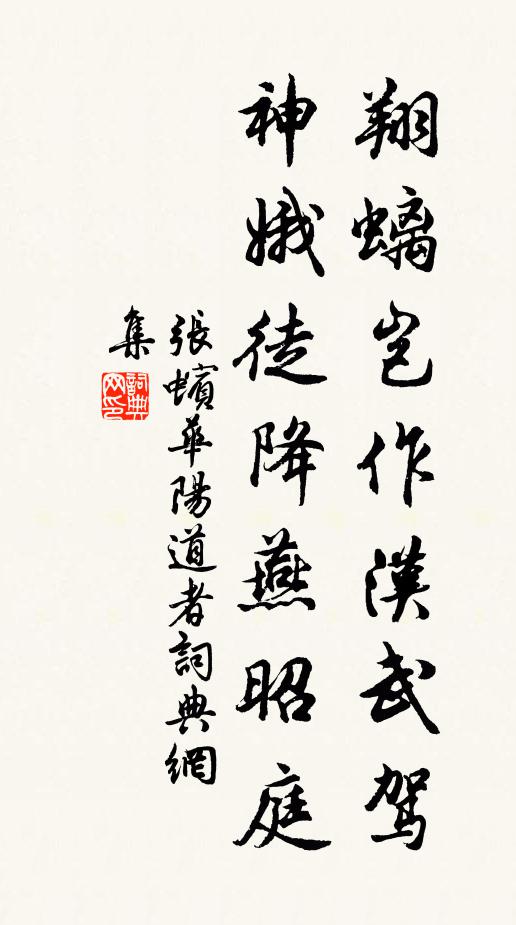 翔螭豈作漢武駕
神娥徒降燕昭庭
張蠙華陽道者詞典網
集
詞典网印